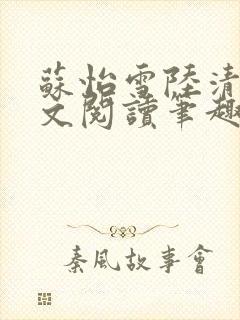 蘇怡雪陸清
文閱讀筆趣
秦風故事會